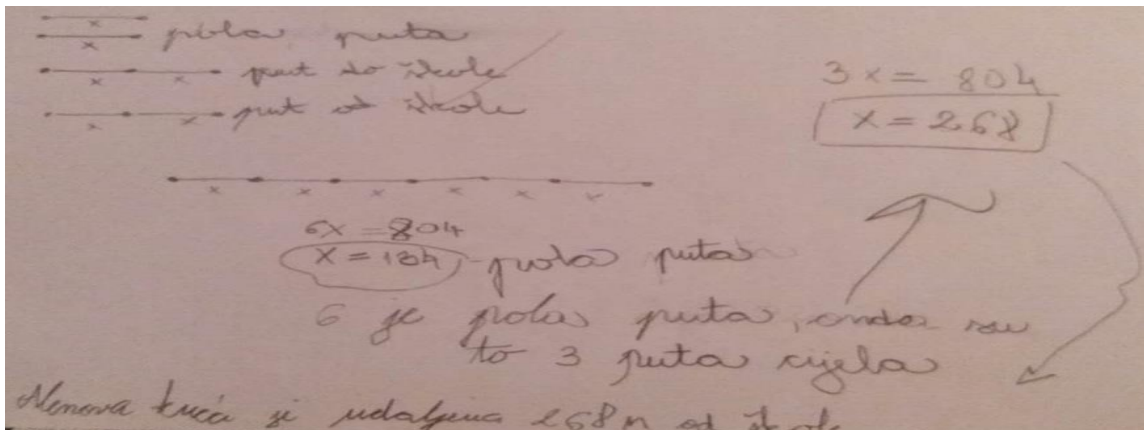 x
x pola puta
x x put do škole
x x put od škole
3x = 804
x = 268
x x x x x x
6x = 804
x = 134 - pola puta
6 je pola puta, onda su
to 3 puta cijela
kuća je udaljena 268 m od škole